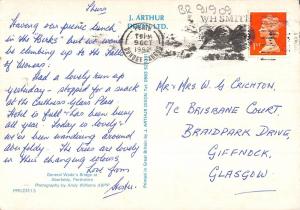 Thurs
Having our picnic lunch
in the "Birks" but we won't
be climbing up to the Falls
of Moness.
Had a lovely run up
yesterday - stopped for a snack
at the Carthness Glass Place
Hotel is full - has been busy
all year. Today is lovely
we've been wandering around
Aberfeldy. The trees are lovely
in their changing colours,
Love from
General Wade's Bridge at
Aberfeldy, Perthshire
Photography by Andy Williams
J. ARTHUR
DIXON LTD.
Printed in Great Britain by J. ARTHUR DIXON
9 OCT
1992
WH SMITH
1st
MR + MRS W G CRICHTON,
7C BRISBANE COURT,
BRAIDPARK DRIVE,
GIFFNOCK,
GLASGOW